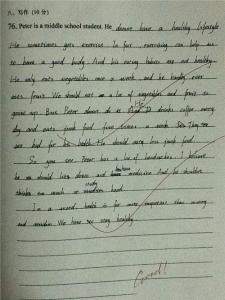 八、写作 (10分)
76. Peter is a middle school student. He doesn't have a healthy lifestyle
He sometimes gets exercise. In fact exercising can help us
to have a good body. And his eating habits are not healthy.
He only eats vegetables once a week and he hardly ever
eats fruit. We should eat a lot of vegetables and fruit to
grow up. But Peter drinks coffee every
day and eats junk food five times a week. They
are bad for his health. He should eating less junk food.
So you see, Peter has a lot of bad habits. I believe
he should and
study hard.
In a word, health is for more important than money
and We have stay healthy
Good!